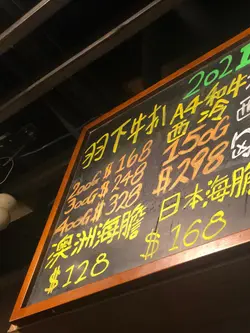 2021
羽下牛扒 A4和牛
西冷
200G $168 150G
300G $248 $298
400G $328
澳洲海膽 日本海膽
$128 $168